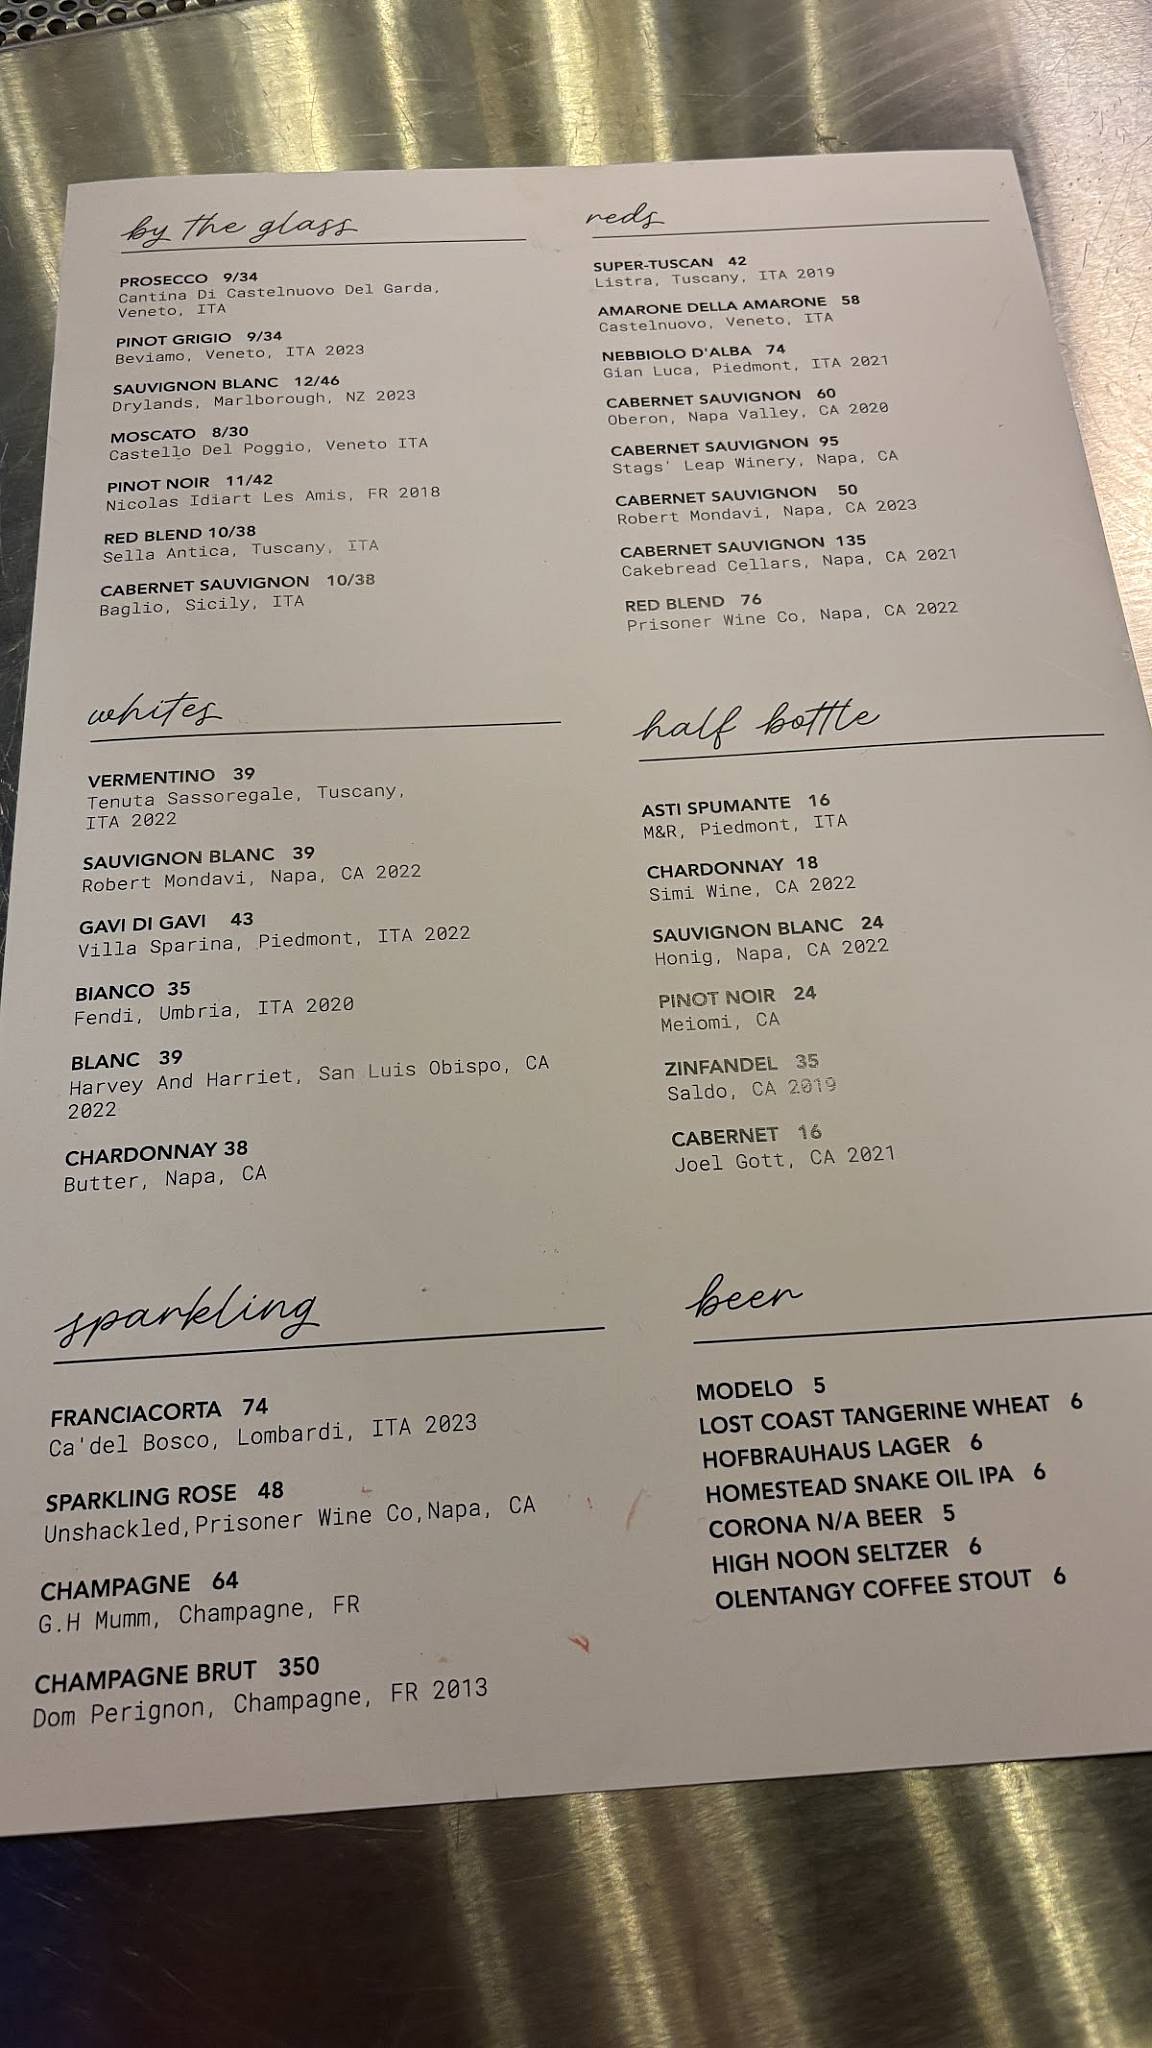 by the glass
PROSECCO 9/34
Cantina Di Castelnuovo Del Garda,
Veneto, ITA
PINOT GRIGIO 9/34
Beviamo, Veneto, ITA 2023
SAUVIGNON BLANC 12/46
Drylands, Marlborough, NZ 2023
MOSCATO 8/30
Castello Del Poggio, Veneto ITA
PINOT NOIR 11/42
Nicolas Idiart Les Amis, FR 2018
RED BLEND 10/38
Sella Antica, Tuscany, ITA
CABERNET SAUVIGNON 10/38
Baglio, Sicily, ITA
reds
SUPER-TUSCAN 42
Listra, Tuscany, ITA 2019
AMARONE DELLA AMARONE 58
Castelnuovo, Veneto, ITA
NEBBIOLO D'ALBA 74
Gian Luca, Piedmont, ITA 2021
CABERNET SAUVIGNON 60
Oberon, Napa Valley, CA 2020
CABERNET SAUVIGNON 95
Stags' Leap Winery, Napa, CA
CABERNET SAUVIGNON 50
Robert Mondavi, Napa, CA 2023
CABERNET SAUVIGNON 135
Cakebread Cellars, Napa, CA 2021
RED BLEND 76
Prisoner Wine Co, Napa, CA 2022
whites
VERMENTINO 39
Tenuta Sassoregale, Tuscany,
ITA 2022
SAUVIGNON BLANC 39
Robert Mondavi, Napa, CA 2022
GAVI DI GAVI 43
Villa Sparina, Piedmont, ITA 2022
BIANCO 35
Fendi, Umbria, ITA 2020
BLANC 39
Harvey And Harriet, San Luis Obispo, CA
2022
CHARDONNAY 38
Butter, Napa, CA
half bottle
ASTI SPUMANTE 16
M&R, Piedmont, ITA
CHARDONNAY 18
Simi Wine, CA 2022
SAUVIGNON BLANC 24
Honig, Napa, CA 2022
PINOT NOIR 24
Meiomi, CA
ZINFANDEL 35
Saldo, CA 2019
CABERNET 16
Joel Gott, CA 2021
sparkling
FRANCIACORTA 74
Ca'del Bosco, Lombardi, ITA 2023
SPARKLING ROSE 48
Unshackled,Prisoner Wine Co,Napa, CA
CHAMPAGNE 64
G.H Mumm, Champagne, FR
CHAMPAGNE BRUT 350
Dom Perignon, Champagne, FR 2013
beer
MODELO 5
LOST COAST TANGERINE WHEAT 6
HOFBRAUHAUS LAGER 6
HOMESTEAD SNAKE OIL IPA 6
CORONA N/A BEER 5
HIGH NOON SELTZER 6
OLENTANGY COFFEE STOUT 6